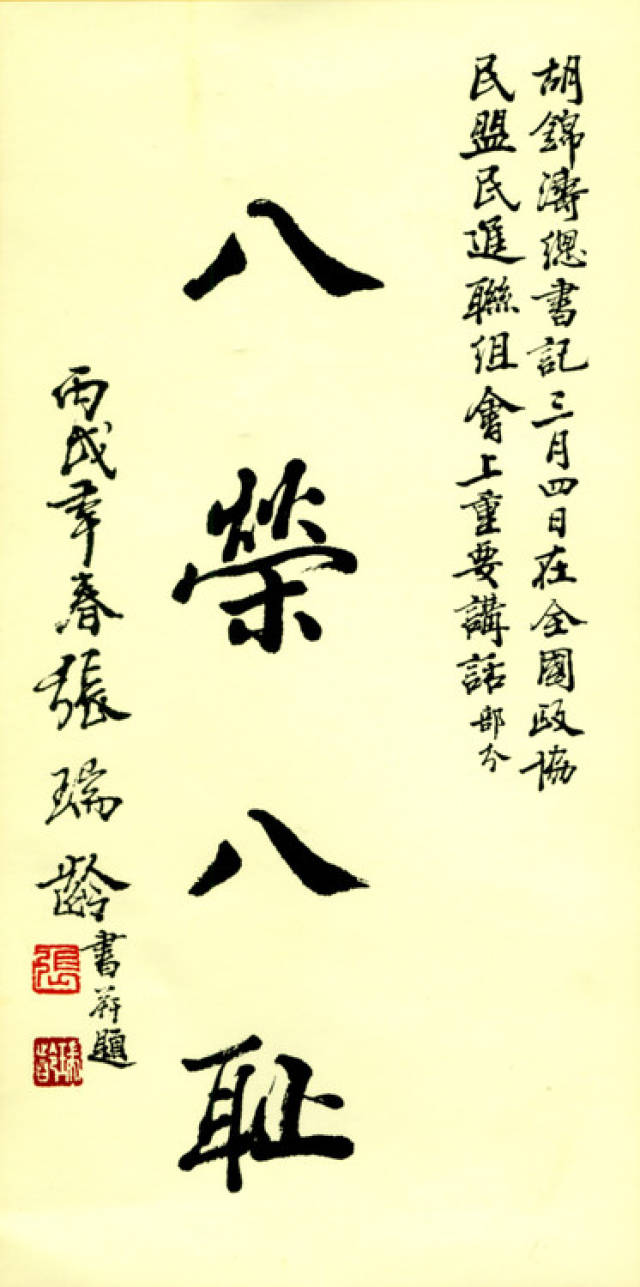 胡錦濤總書記三月四日在全國政協
民盟民進聯組會上重要講話部分
八榮八耻
丙戌年春張瑞齡書并題
張
瑞齡